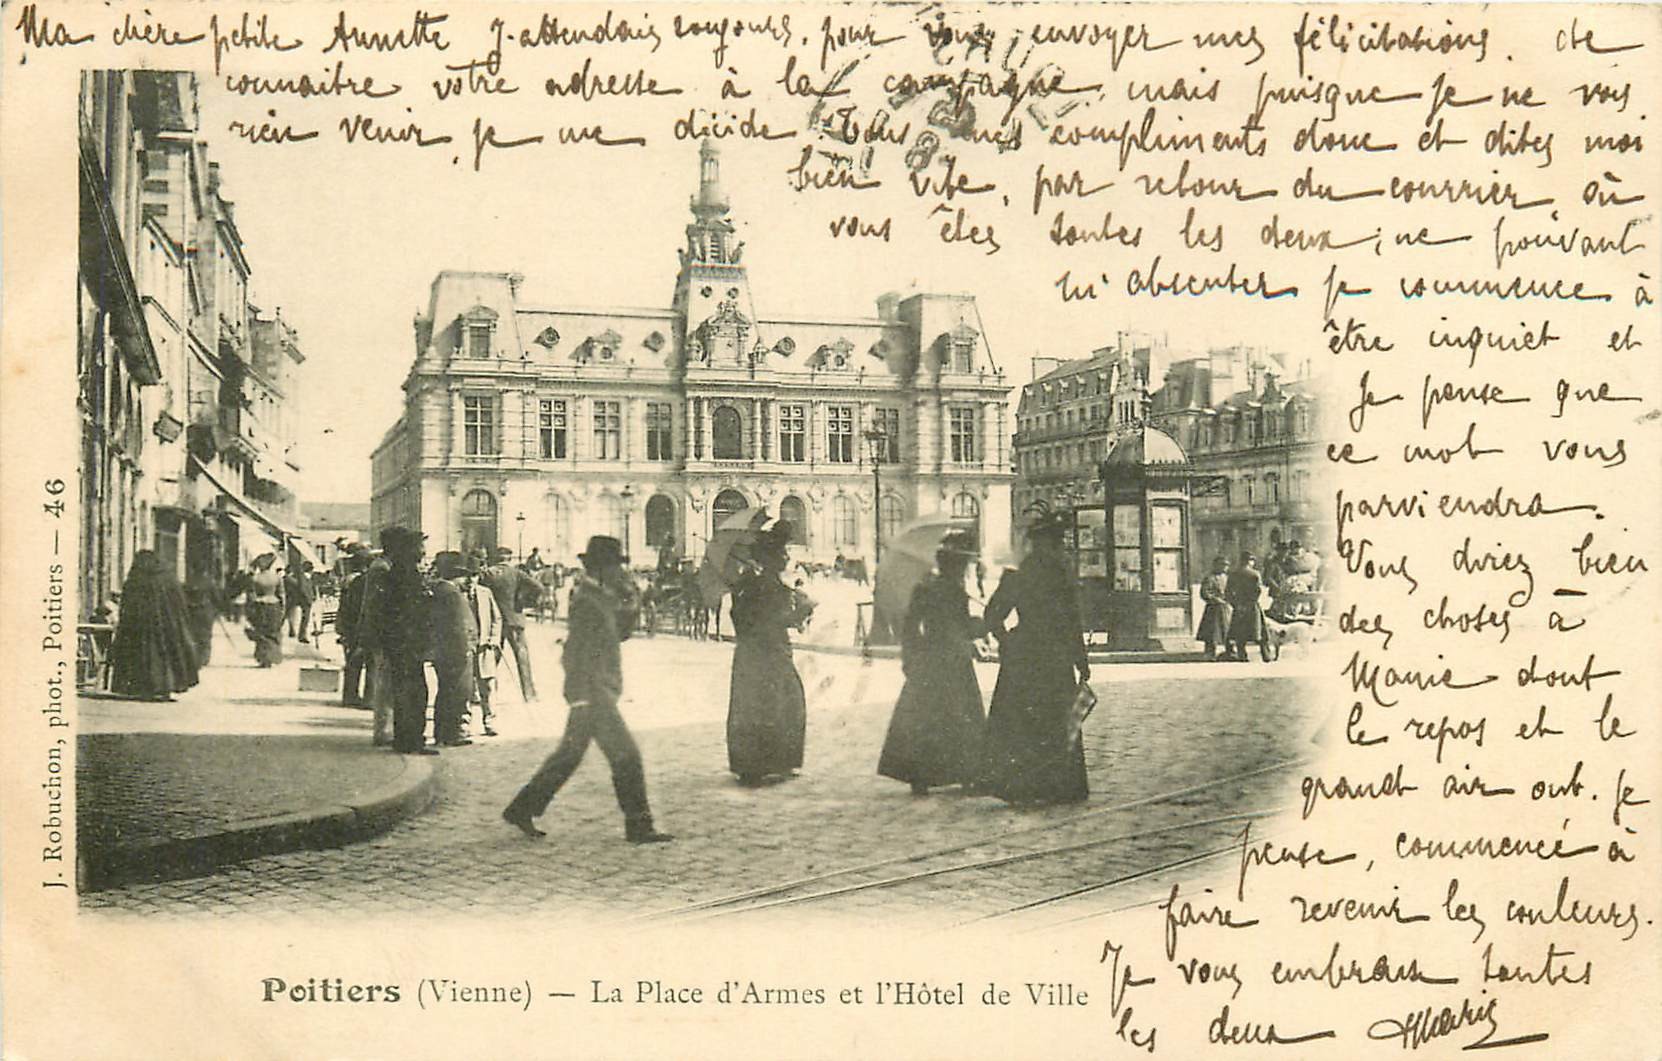 Ma chère petite Annette J'attendais toujours, pour vous envoyer mes félicitations, de
connaitre votre adresse à la campagne, mais puisque je ne vois
rien venir, je me décide. Tous mes compliments donc et dites moi
bien vite, par retour du courrier, où
vous êtes toutes les deux; ne pouvant
m'absenter je commence à
être inquiet et
Je pense que
ce mot vous
parviendra.
Vous direz bien
des choses à
Mamie dont
le repos et le
grand air ont, je
pense, commencé à
faire revenir les couleurs.
Je vous embrasse toutes
les deux
J. Robuchon, phot., Poitiers — 46
Poitiers (Vienne) — La Place d'Armes et l'Hôtel de Ville